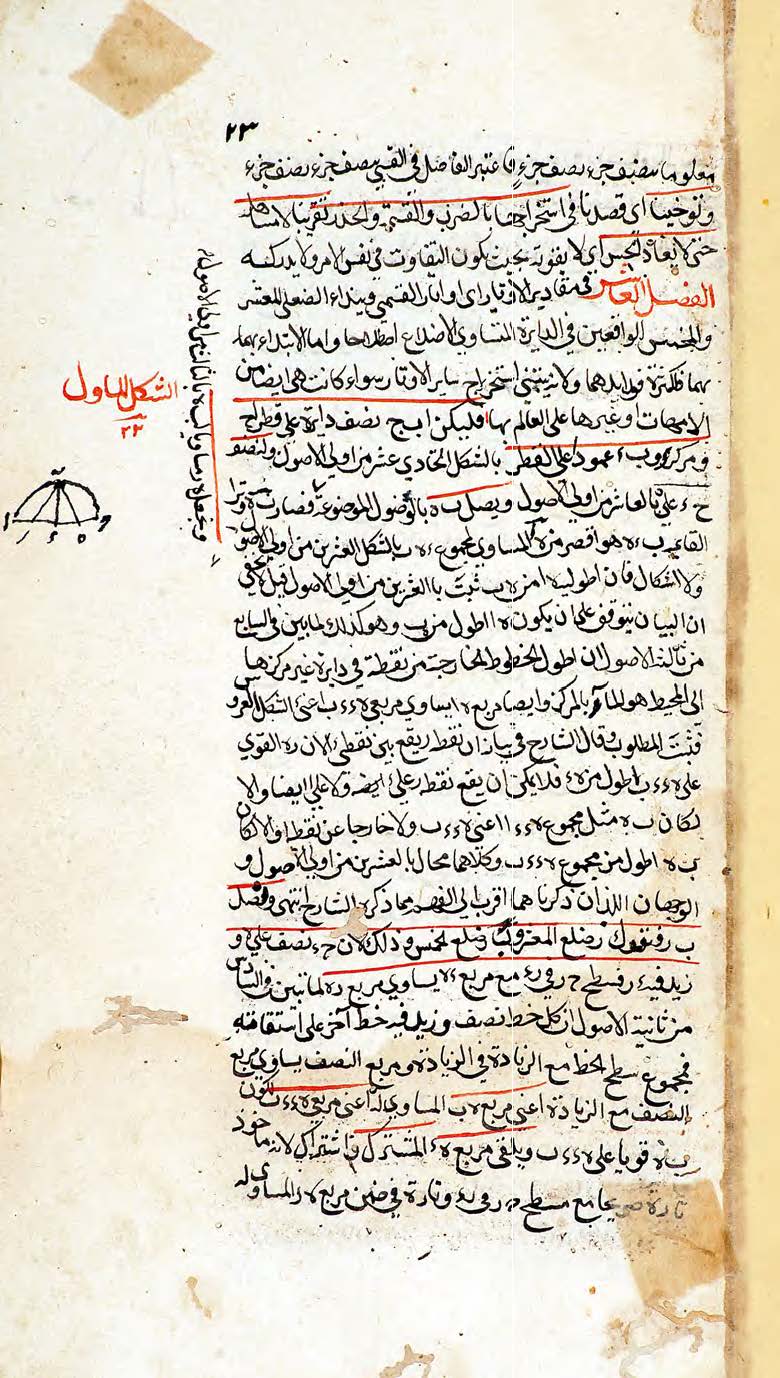 ٢٣
معلوما بنصف جزء نصف جزء اذا عتبر الفاضل في القسي بنصف جزء نصف جزء
وتوخينا اي قصدنا في استخراجها بالضرب والقسمة والجذر تقريبا لامساهلة
حتى لا يغادر الحس اي لا يفوته بحيث يكون التفاوت في نفس الامر ولا يدركه
الفصل العاشر في مقادير الاوتار اي اوتار القسي ويبدا الضعلي المعشر
والمخمس الواقعين في الدايرة المتساوي الاضلاع اصطلاحا واما الابتداء بهما
بهما فلكثرة فوايدهما ولانه يبتنى استخراج ساير الاوتار سواء كانت هي ايضا من
الامهات او غيرها على العالم بها فليكن ا ب ج نصف دايرة على قطر ا ج
ومركز ء و ب ء عمودا على القطر بالشكل الحادي عشر من اولي الاصول ولننصف
ج ء على ه بالعاشر من اولي الاصول ويصل ب ه بالوصول الموضوعة فصارت ه ب وترا
القايمة ب ء ه هو اقصر من ه ا المساوي لمجموع ء ه ب بالشكل العشرين من اولي الاصول
ولا اشكال فان اطولية ه ا من ه ب ثبتت باالعشرين من اولي الاصول قبل لا يخفى
ان البيان يتوقف على ان يكون ه ا اطول من ه ب وهو كذلك لما بين في السابع
من ثالثة الاصول ان اطول الخطوط الخارجة من نقطة في دايرة غير مركزها
الى المحيط هو المار بالمركز وايضا مربع ه ا يساوي مربعي ه ء ء ب اعني الشكل العروس
فثبت المطلوب وقال الشارح في بيان ان نقطة ر يقع بين نقطتي ا ء لان ر ه القوي
على ه ء ء ب اطول من ه ء فلا يمكن ان يقع نقطة ر على ء ايضه ولا على ا ايضا والا
لكان ب ه مثل مجموع ه ء ء ا اعني ه ء ء ب ولا خارجا عن نقطة ا والا لكان
ب ه اطول من مجموع ه ء ء ب وكلاهما محال بالعشرين من اولي الاصول و
الوجهان اللذان ذكرناهما اقرب الى الفهم مما ذكره الشارح انتهى ونصل
ب ر فنقول ر ء ضلع المعشر و ب ر ضلع المخمس وذلك لان ج ء نصف على ه و
زيد فيه ء ر فسطح ج ر في ر ء مع مربع ه ء يساوي مربع ر ه لما تبين في السادس
من ثانية الاصول ان كل خط نصف وزيد فيه خط آخر على استقامته
فمجموع سطح الخط مع الزيادة في الزيادة ومربع النصف يساوي مربع
النصف مع الزيادة اعني مربع ه ب المساوي له اعني مربعي ه ء ء ب لكون
ب ه قويا على ه ء ء ب ويلقى مربع ه ء المشترك اشتراك لانه ماخوذ
تارة صريحا مع مسطح ج ر في ر ء وتارة في ضمن مربع ه ر المساوي له
ونجعل ه ر مساويا ل ب ه بالثالث من اولي الاصول
الشكل الاول
٢٣